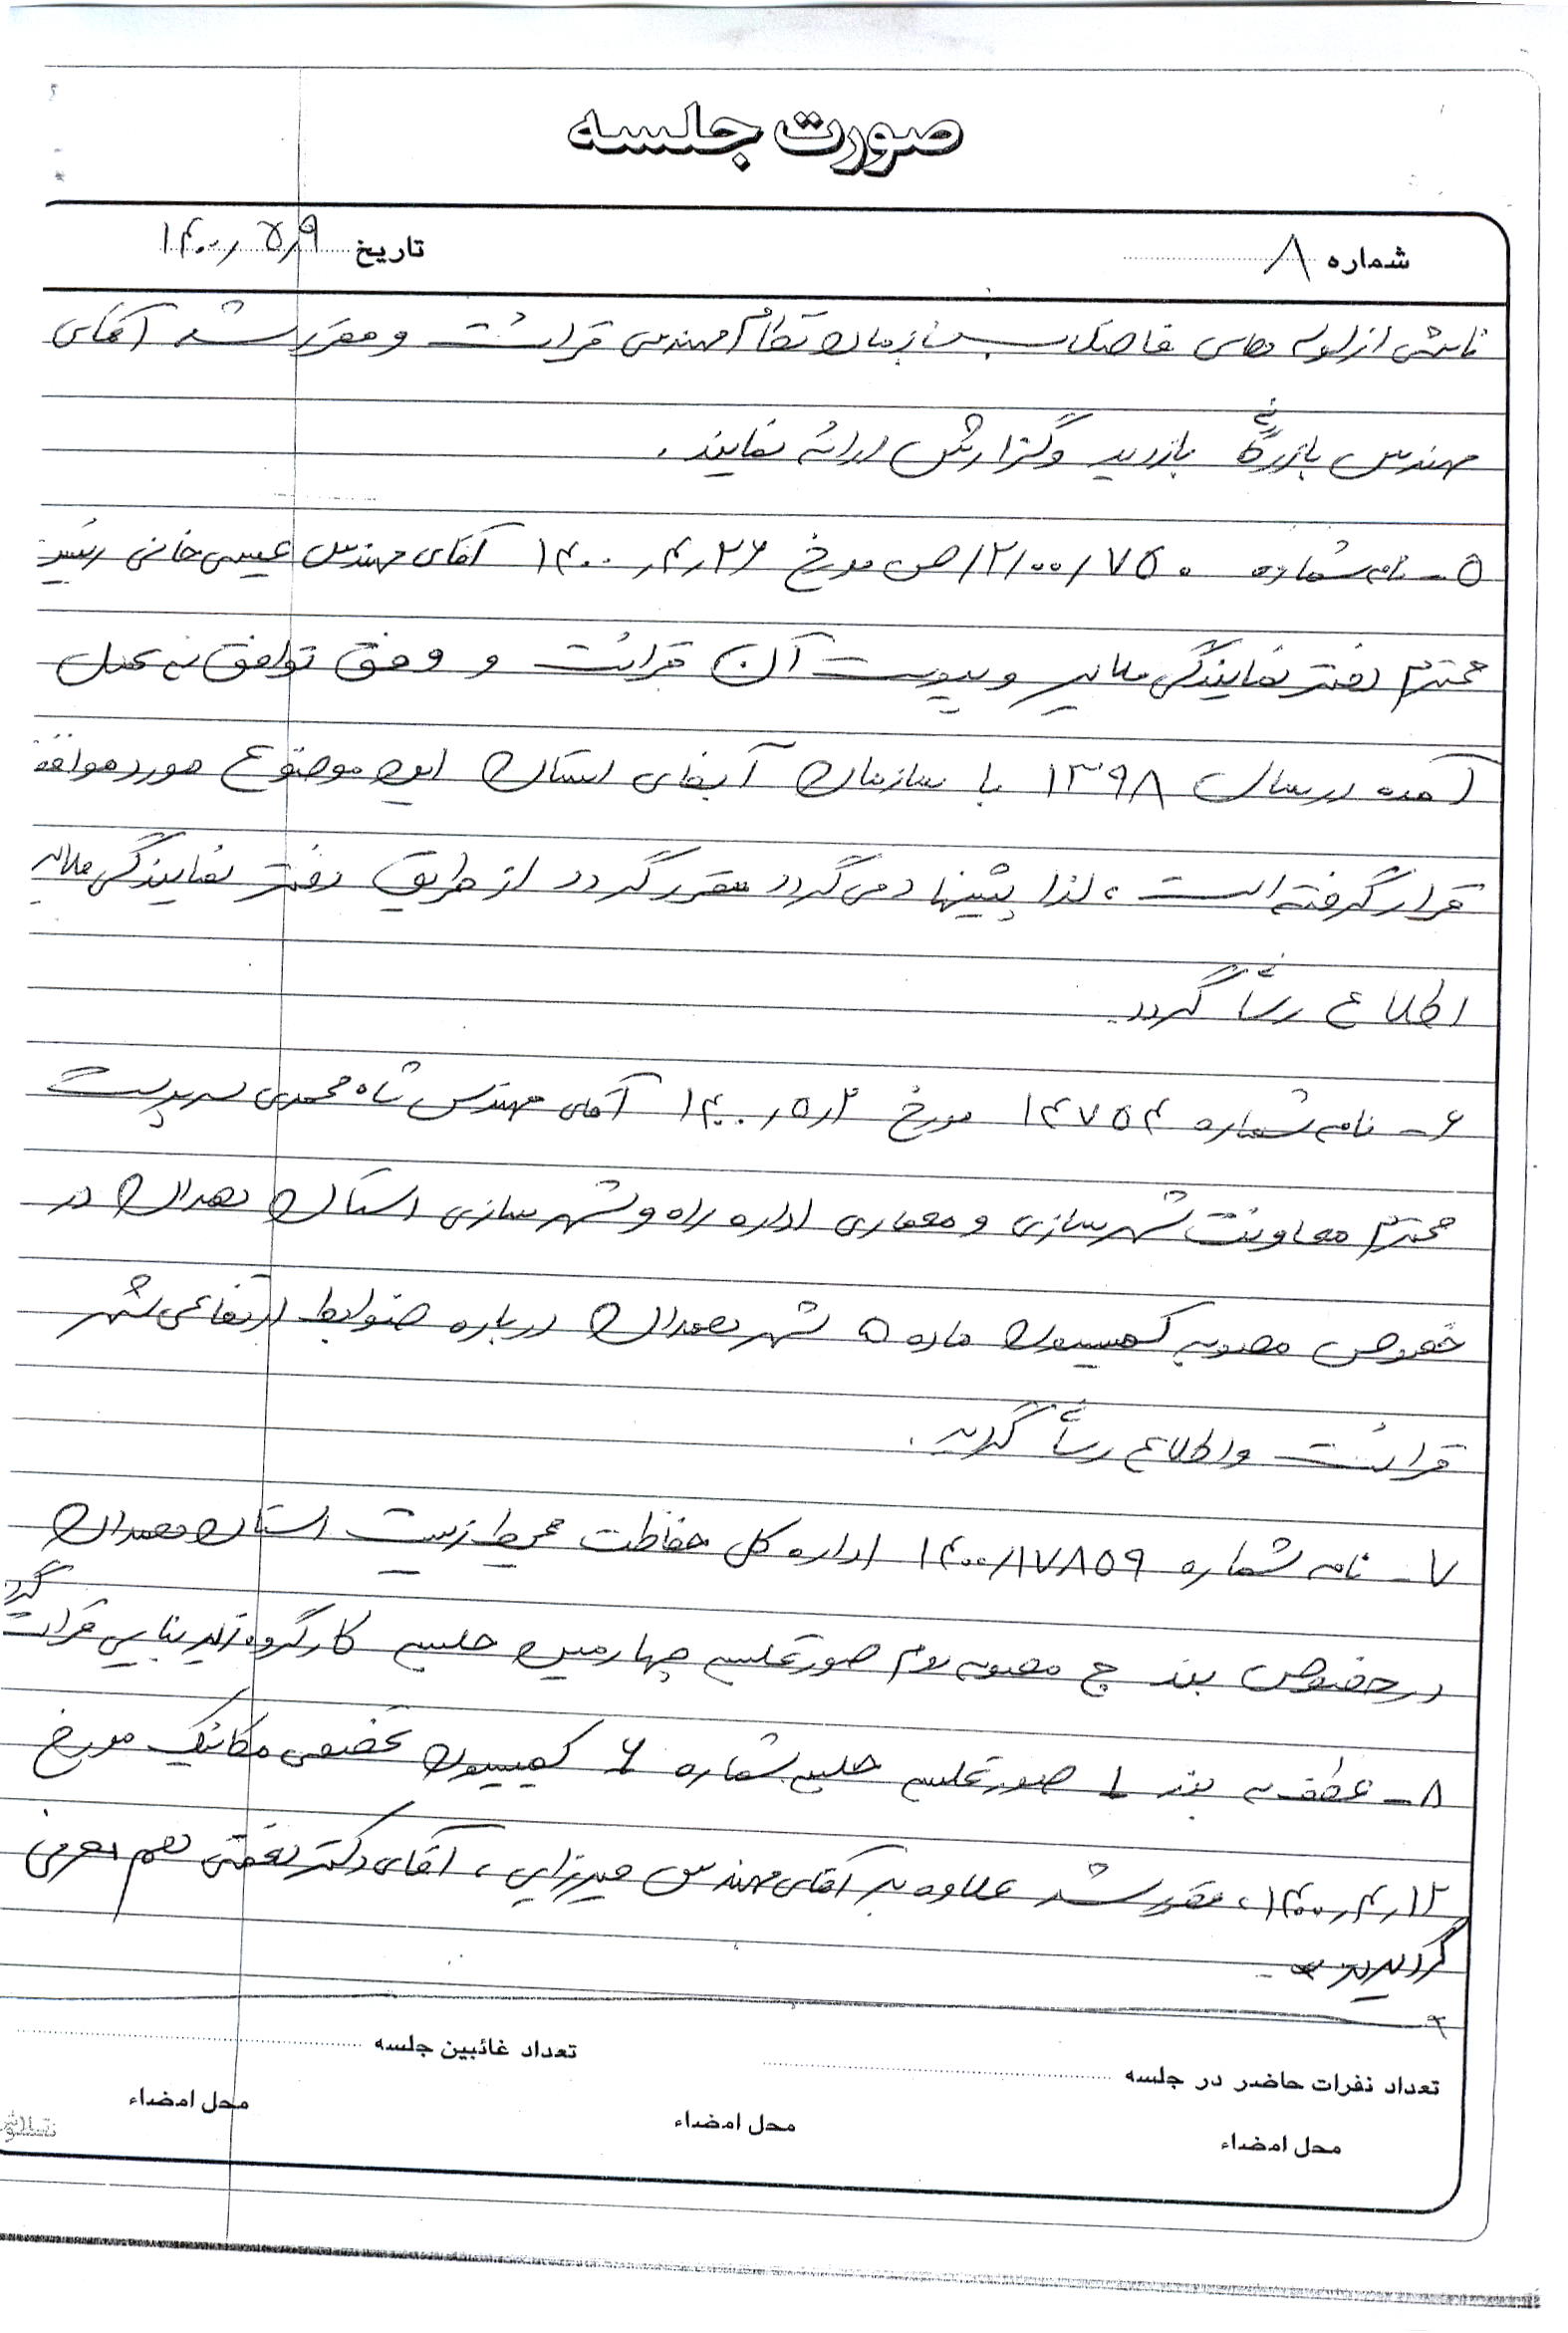 صورت جلسه
شماره ۸ تاریخ ۱۴۰۰٫۵٫۹
ناشی از لوله های فاضلاب سازمان نظام مهندسی قرائت و مقرر شد آقای
مهندس بازرگانی بازدید و گزارش ارائه نمایند.
۵- نامه شماره ۱۲/۰۰/۷۵۰/ص مورخ ۱۴۰۰٫۴٫۲۶ آقای مهندس عیسی خانی رئیس
محترم دفتر نمایندگی ملایر و پیوست آن قرائت و وفق توافق به عمل
آمده در سال ۱۳۹۸ با سازمان آبفای استان این موضوع مورد موافقت
قرار گرفته است، لذا پیشنهاد می گردد مقرر گردد از طریق دفتر نمایندگی ملایر
اطلاع رسانی گردد.
۶- نامه شماره ۱۴۷۵۴ مورخ ۱۴۰۰٫۵٫۲ آقای مهندس شاه محمدی سرپرست
محترم معاونت شهرسازی و معماری اداره راه و شهرسازی استان همدان در
خصوص مصوبه کمیسیون ماده ۵ شهر همدان درباره ضوابط ارتفاعی شهر
قرائت و اطلاع رسانی گردید.
۷- نامه شماره ۱۴۰۰/۱۷۸۵۹ اداره کل حفاظت محیط زیست استان همدان
در خصوص بند ج مصوبه دوم صورتجلسه چهارمین جلسه کارگروه زیربنایی قرائت گردید
۸- عطف به بند ۱ صورتجلسه جلسه شماره ۶ کمیسیون تخصصی مکانیک مورخ
۱۴۰۰٫۴٫۱۲، مقرر شد علاوه بر آقای مهندس میرزایی، آقای دکتر نعمتی هم معرفی
گردیدند
تعداد نفرات حاضر در جلسه تعداد غائبین جلسه
محل امضاء محل امضاء محل امضاء